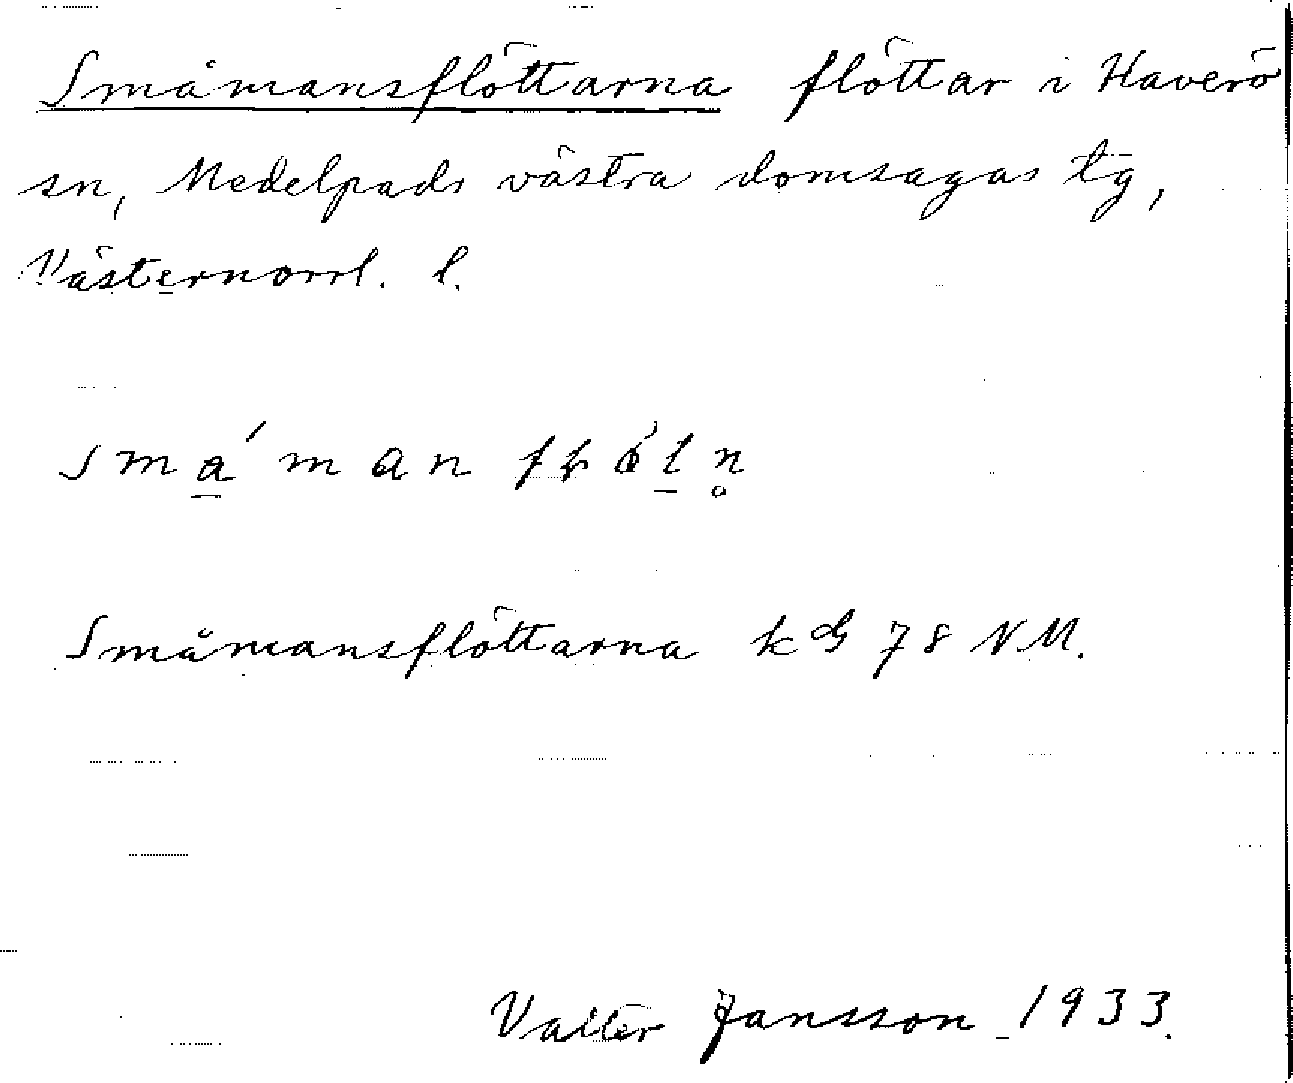 Småmansflöttarna flöttar i Haverö
sn, Medelpads västra domsagas tg,
Västernorrl. l.
Småmansflöttarna kG 78 NM.
Valter Jansson 1933.